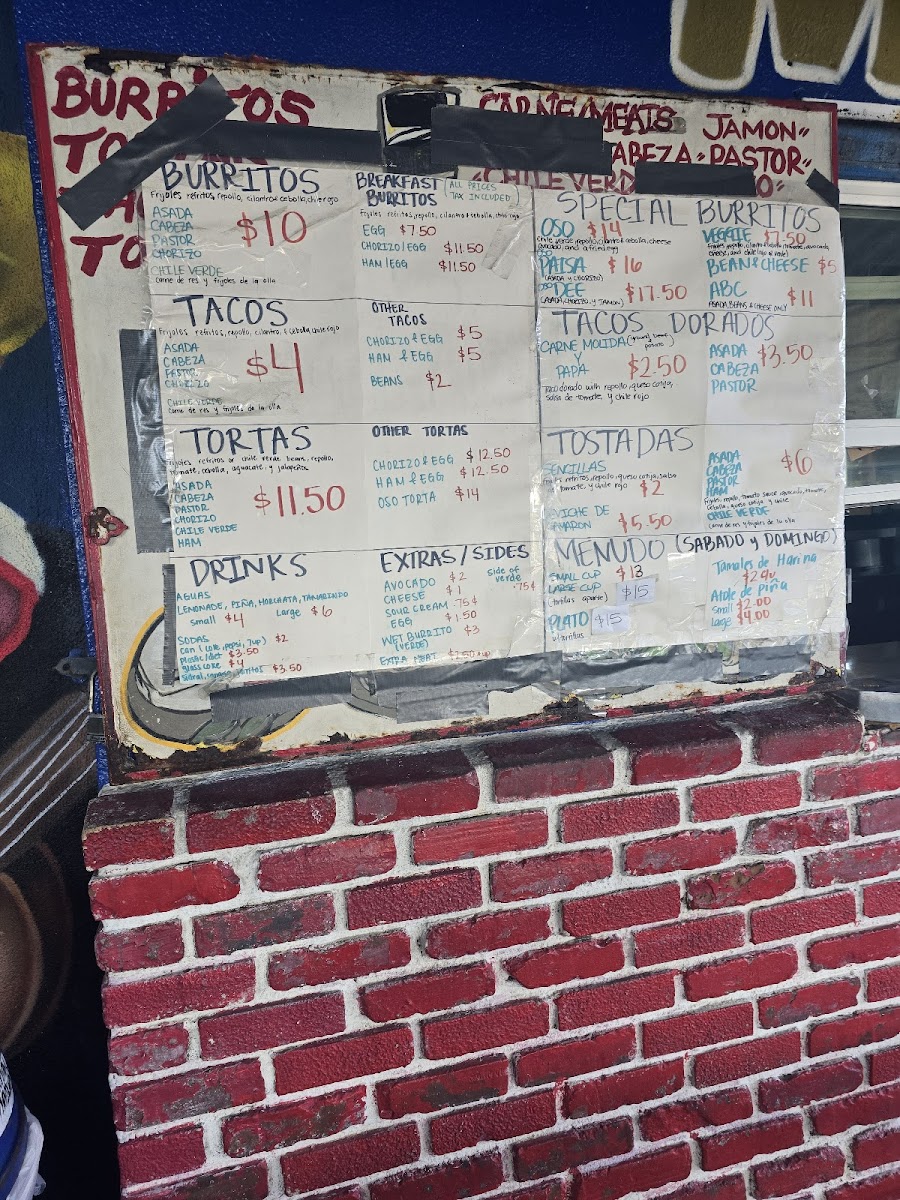 BURRITOS
CARNE/MEATS
JAMON
CABEZA • PASTOR
CHILE VERDE
BURRITOS
Frijoles refritos, repollo, cilantro & cebolla, chile rojo
ASADA
CABEZA
PASTOR
CHORIZO
$10
CHILE VERDE
Carne de res y frijoles de la olla
BREAKFAST
BURRITOS
ALL PRICES
TAX INCLUDED
Frijoles refritos, repollo, cilantro & cebolla, chile rojo
EGG $7.50
CHORIZO/EGG $11.50
HAM/EGG $11.50
TACOS
Frijoles refritos, repollo, cilantro, & cebolla, chile rojo
ASADA
CABEZA
PASTOR
CHORIZO
$4
CHILE VERDE
Carne de res y frijoles de la olla
OTHER
TACOS
CHORIZO & EGG $5
HAM & EGG $5
BEANS $2
TORTAS
Frijoles refritos or chile verde beans, repollo,
tomate, cebolla, aguacate, y jalapeños
ASADA
CABEZA
PASTOR
CHORIZO
CHILE VERDE
HAM
$11.50
OTHER TORTAS
CHORIZO & EGG $12.50
HAM & EGG $12.50
OSO TORTA $14
DRINKS
AGUAS
LEMONADE, PIÑA, HORCHATA, TAMARINDO
Small $4 Large $6
SODAS
Can (coke, pepsi, 7up) $2
plastic/diet $3.50
glass coke $4
$3.50
EXTRAS/SIDES
AVOCADO $2
CHEESE $1
SOUR CREAM .75¢
EGG $1.50
WET BURRITO $3
(VERDE)
EXTRA MEAT
Side of
verde .75¢
SPECIAL BURRITOS
OSO $14
Chile verde, repollo, cilantro & cebolla, cheese
avocado, and a fried egg
PAISA $16
(ASADA y CHORIZO)
DEE $17.50
(ASADA, CHORIZO, y JAMON)
VEGGIE $7.50
BEAN & CHEESE $5
ABC $11
ASADA, BEANS & CHEESE ONLY
TACOS DORADOS
CARNE MOLIDA (ground beef &
Y
PAPA
$2.50
Taco dorado with repollo, queso cotija,
salsa de tomate, y chile rojo
ASADA
CABEZA
PASTOR
$3.50
TOSTADAS
SENCILLAS
refritos, repollo, queso cotija, salsa
tomate, y chile rojo $2
VICHE DE
$5.50
ASADA
CABEZA
PASTOR
HAM
$6
CHILE VERDE
Carne de res y frijoles de la olla
MENUDO (SABADO y DOMINGO)
SMALL CUP $13
LARGE CUP $15
(tortillas aparte)
PLATO $15
w/tortillas
Tamales de Harina
Atole de Piña
Small $2.00
Large $4.00